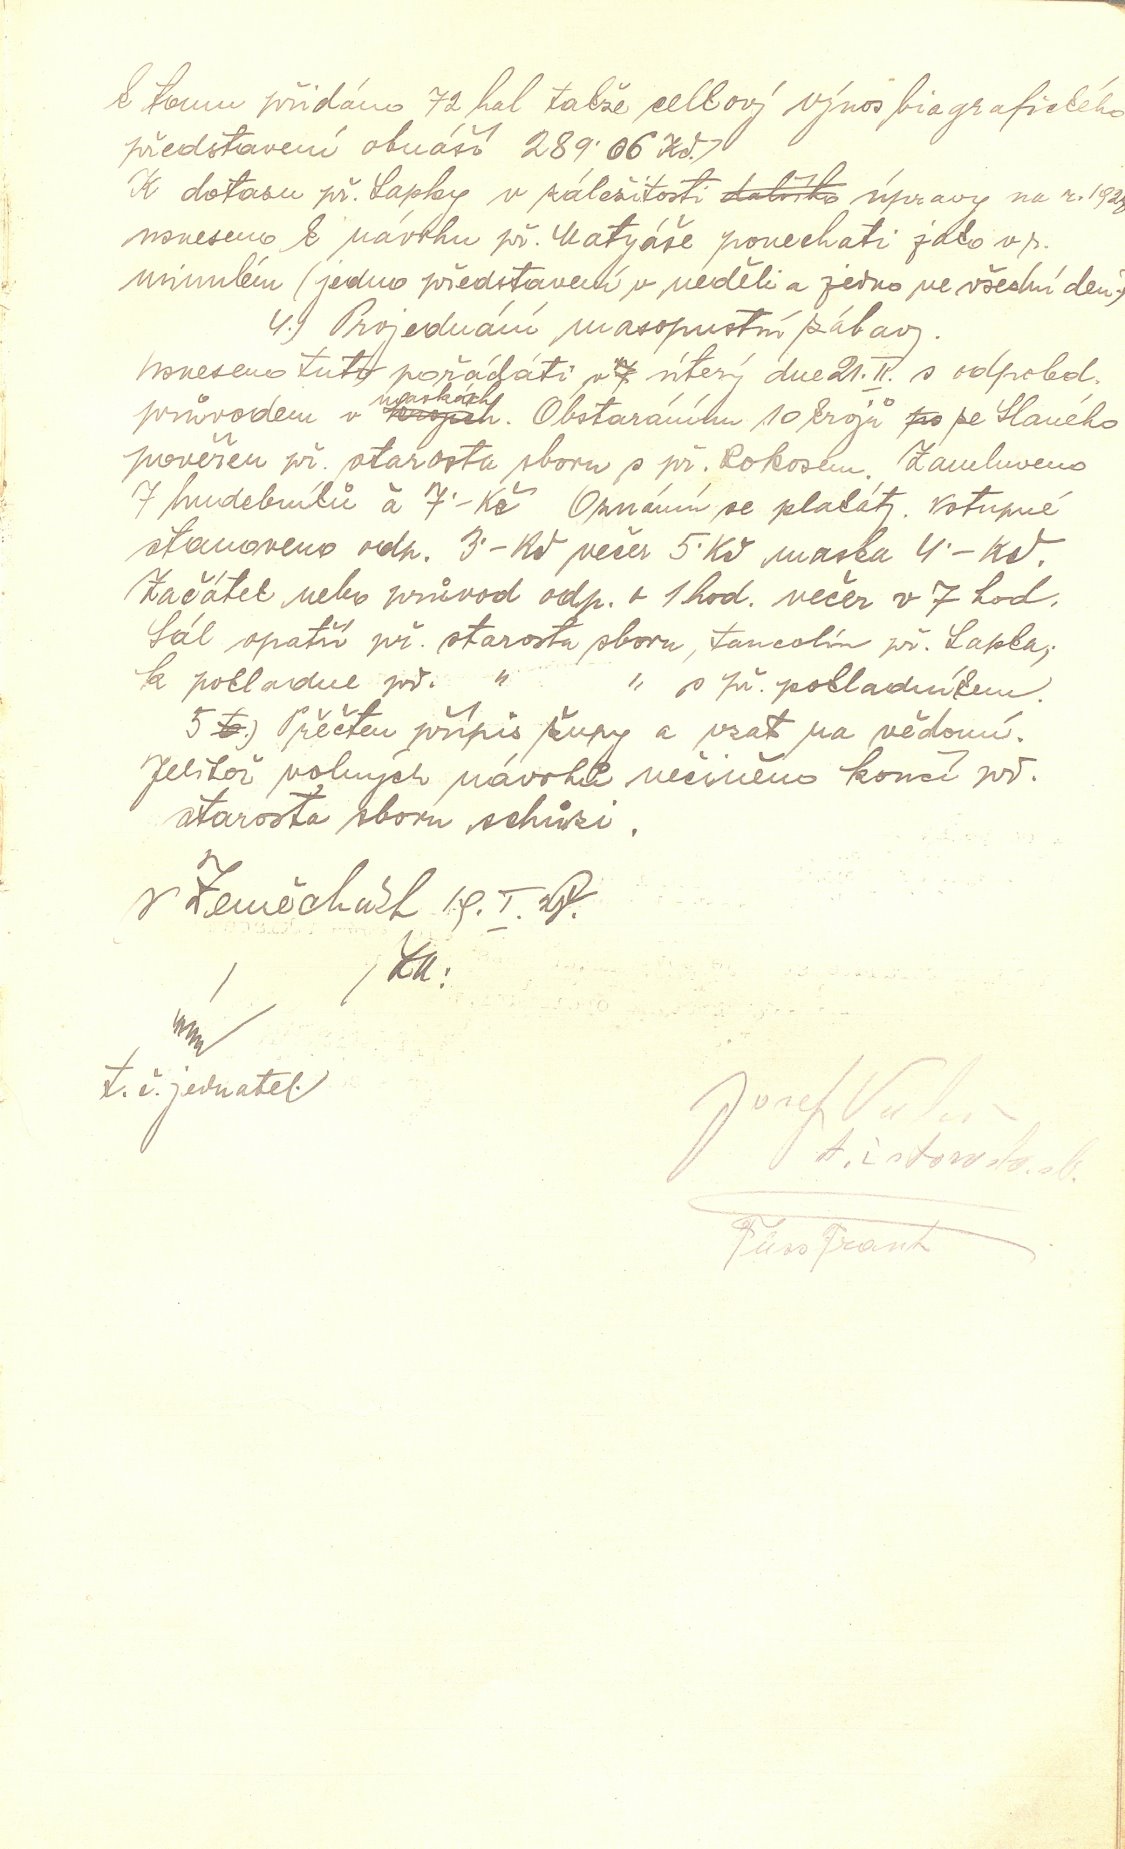 k tomu přidáno 72 hal takže celkový výnos biografického
představení obnáší 289·06 Kč.)
K dotazu př. Lapky v záležitosti dalšího úpravy na r. 1928
usneseno k návrhu př. Matyáše ponechati jako v r.
minulém (jedno představení v neděli a jedno ve všední den)
4.) Projednání masopustní zábavy.
Usneseno tuto pořádati v úterý dne 21. II. s odpoled.
maskách
průvodem v krojích. Obstaráním 10 krojů po ze Slaného
pověřen př. starosta sboru s př. Rokosem. Zamluveno
7 hudebníků à 7·– Kč Oznámí se plakáty. Vstupné
stanoveno odp. 3·– Kč večer 5· Kč maska 4·– Kč.
Začátek nebo průvod odp. o 1 hod. večer v 7 hod.
Sál opatří př. starosta sboru, tancolín př. Lapka,
k pokladne př. " " s př. pokladníkem.
5 .) Přečten přípis župy a vzat na vědomí.
Jelikož volných návrhů nečiněno končí př.
starosta sboru schůzi.
V Zeměchách 19. I. 28.
Za:
t. č. jednatel.
Josef
t. č. starosta. sb.
Frant